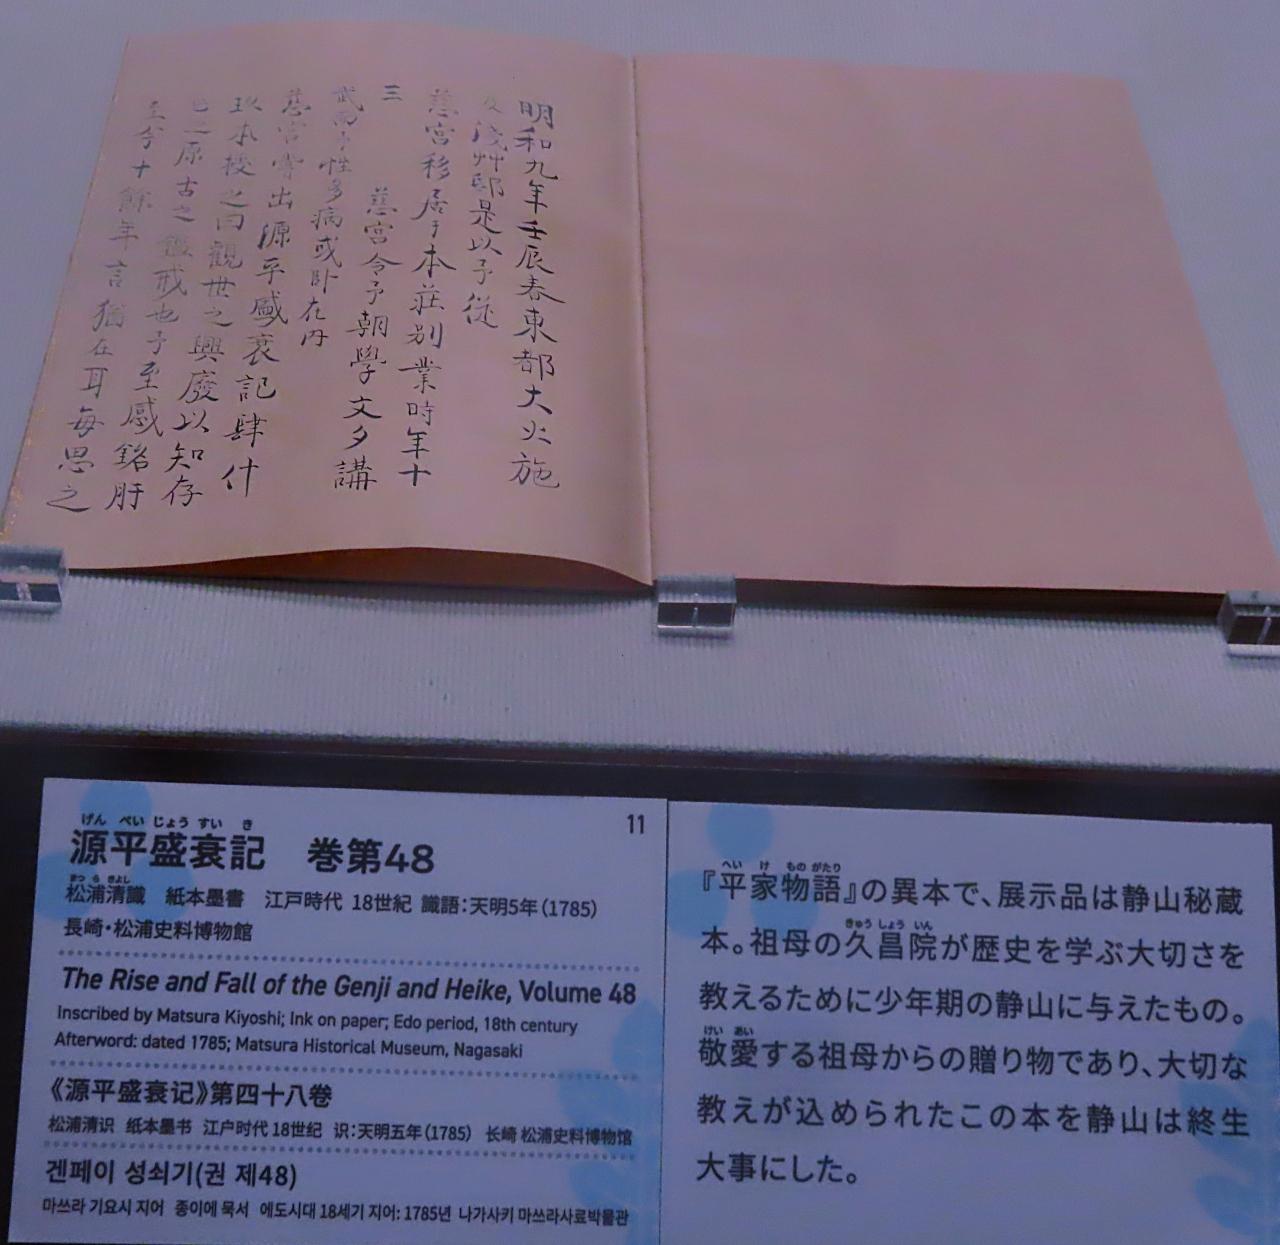 明和九年壬辰春東都大火施
及淺艸邸是以予從
慈宮移居于本莊別業時年十
三　　慈宮令予朝學文夕講
武而予性多病或臥在内
慈宮嘗出源平盛衰記肆什
玖本授之曰觀世之興廢以知存
亡之原古之鑑戒也予至感銘肝
至今十餘年言猶在耳每思之
げん ぺい じょう すい き
源平盛衰記　巻第48
11
まつ ら きよし
松浦清識　紙本墨書　江戸時代 18世紀 識語：天明5年（1785）
長崎・松浦史料博物館
The Rise and Fall of the Genji and Heike, Volume 48
Inscribed by Matsura Kiyoshi; Ink on paper; Edo period, 18th century
Afterword: dated 1785; Matsura Historical Museum, Nagasaki
《源平盛衰记》第四十八卷
松浦清识 纸本墨书 江户时代 18世纪 识：天明五年（1785） 长崎 松浦史料博物馆
겐페이 성쇠기(권 제48)
마쓰라 기요시 지어 종이에 묵서 에도시대 18세기 지어: 1785년 나가사키 마쓰라사료박물관
へい け もの がたり
『平家物語』の異本で、展示品は静山秘蔵
きゅう しょう いん
本。祖母の久昌院が歴史を学ぶ大切さを
教えるために少年期の静山に与えたもの。
けい あい
敬愛する祖母からの贈り物であり、大切な
教えが込められたこの本を静山は終生
大事にした。